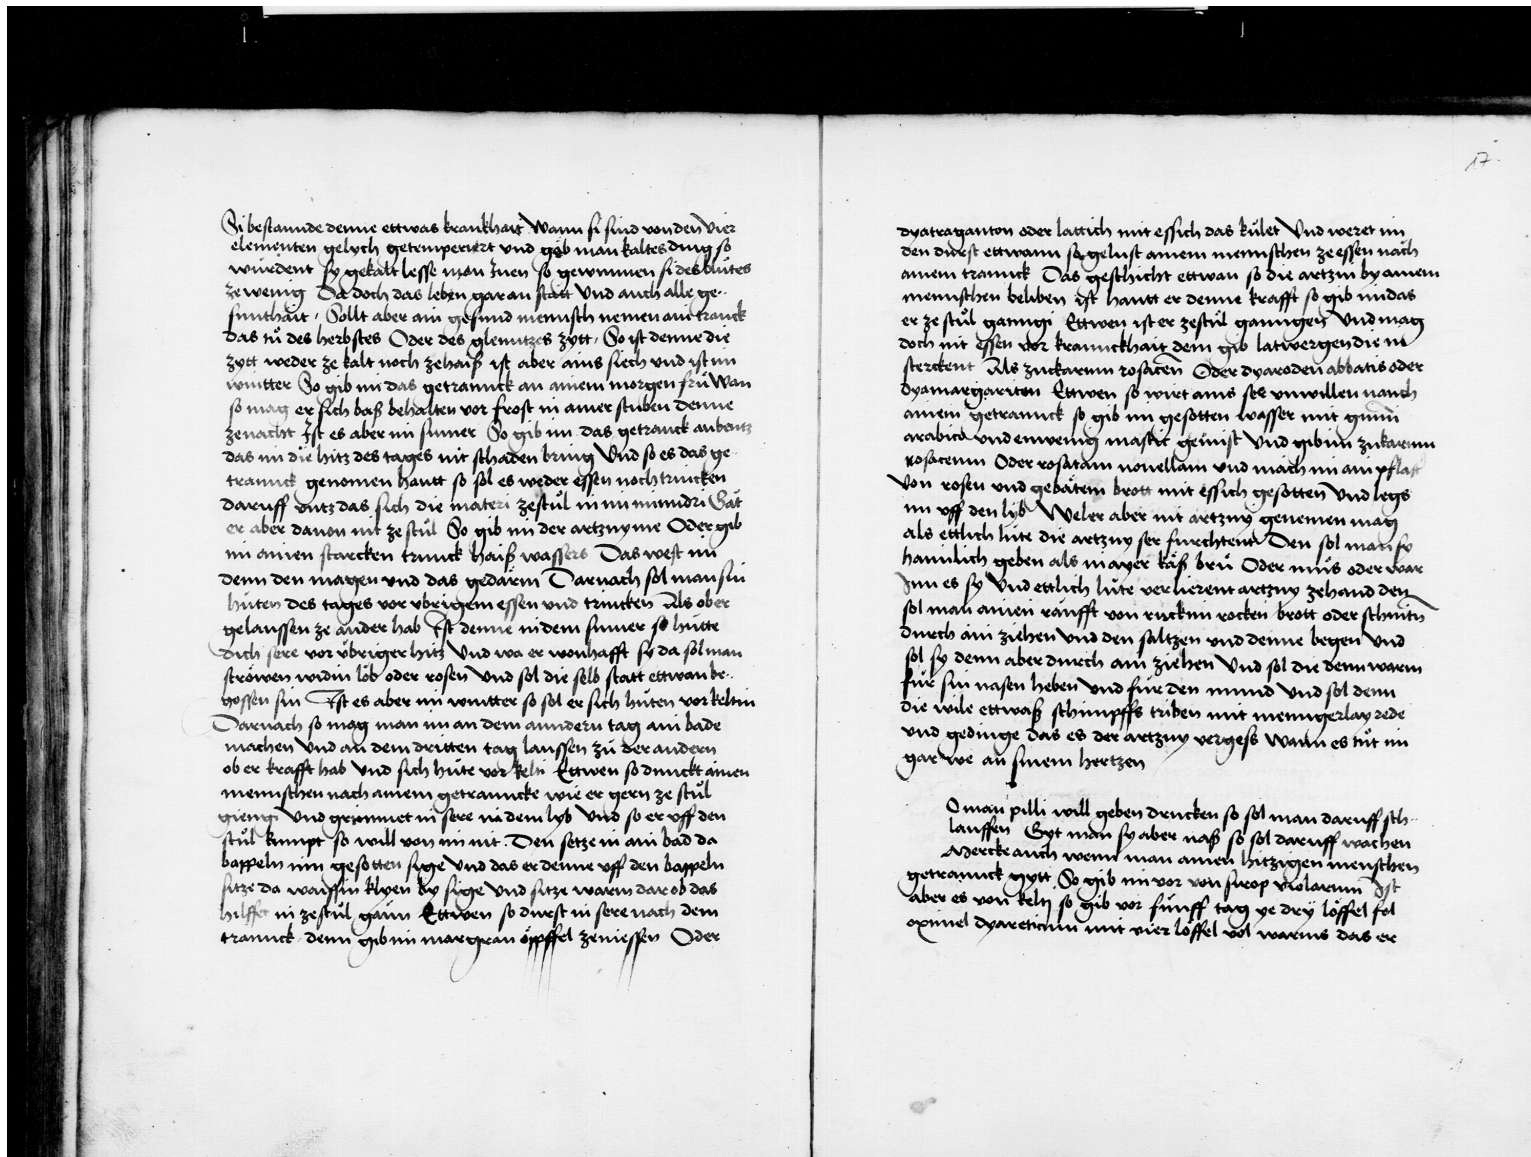 Si bestannde denne ettwas krankhait Wann si sind von den vier
elementen gelych getemperiert vnd gäb man kaltes ding so
wurdent sy gekalt lesse man Inen so gewunnen si des blůtes
ze wenig Da doch das leben gar an statt Vnd auch alle ge-
sunthait Sollt aber ain gesund mennsch nemen ain tranck
das tů des herbstes Oder des glenntzes zytt So ist denne die
zytt weder ze kalt noch ze haiß ist aber ains siech vnd ist im
wintter So gib im das getrannck an ainem morgen frů Wan
so mag er sich baß behalten vor frost in ainer stuben denne
ze nacht Ist es aber im sumer So gib im das getranck aubentz
das im die hitz des tages nit schaden bring Vnd so es das ge-
trannck genomen hautt so sol es weder essen noch trincken
daruff vntz das sich die materi ze stůl in im mindri Gät
er aber dauon nit ze stůl So gib im der artzny me Oder gib
im ainen starcken trunck haiß wassers Das west im
denn den magen vnd das gedärm Darnach sol man sin
hüten des tages vor vbrigem essen vnd trincken Als ober
gelaussen ze ander hab Ist denne in dem sumer so hütte
dich sere vor übriger hitz Vnd wa er wonhafft sy da sol man
ströwen widin löb oder rosen Vnd sol die selb statt ettwan be-
gossen sin Ist es aber im wintter so sol er sich hüten vor keltin
Darnach so mag man im an dem anndern tag ain bade
machen Vnd an dem dritten tag laussen zů der andern
ob er krafft hab Vnd sich hüte vor kelti Ettwen so dunckt ainen
mennschen nach ainem getrannck wie er gern ze stůl
giengi Vnd grimmet in sere in dem lyb Vnd so er vff den
stůl kumpt so will von im nit. Den setze in ain bad da
bappeln inn gesotten sige Vnd das er denne vff den bappeln
sitze da waissin klyen by sige Vnd sitze warm dar ob das
hilffet in ze stůl gaun Ettwen so durst in sere nach dem
trannck denn gib im margran öppffel ze niessen Oder
17.
dyatraganton oder lattich mit essich das kület Vnd weret im
den durst ettwann so gelust ainem mennschen ze essen nach
ainem trannck Das geschicht ettwan so die artzni by ainem
mennschen beliben ist hautt er denne krafft so gib im das
er ze stůl ganngi Ettwen ist er ze stůl ganngen Vnd mag
doch nit essen vor kranckhait dem gib latwergen die in
sterckent Als zuckarum rosacen Oder dyaroden abbatis oder
dyamargariton Ettwen so wirt ains ser vnwillen nauch
ainem getrannck so gib im gesotten wasser mit gumi
arabico vnd ein wenig mastic gemist Vnd gib im zukarum
rosaceum Oder rosatam nouellam vnd mach im ain pflast
von rosen vnd gebätem brott mit essich gesotten Vnd legs
im vff den lyb Weler aber nit artzny genemen mag
als ettlich lüte die artzny ser fürchtent Den sol man sy
haimlich geben als in ayer käß brü Oder müs oder war
Inn es sy Vnd ettlich lüte verlierent artzny zehand den
sol man ainen räufft von ruckim rocken brott oder schnittn
durch ain ziehen Vnd den saltzen vnd denne begen Vnd
sol sy denn aber durch ain ziehen Vnd sol die denn warm
für sin nasen heben Vnd für den mund Vnd sol denn
die wile ettwaß schimpffs triben mit mengerlay rede
vnd gedinge das es der artzny vergess Wann es tůt im
gar we an sinem hertzen
O man pilli will geben drucken so sol man daruff sch-
lauffen Gyt man sy aber naß so sol daruff wachen
Mercke auch wenn man ainen hitzigen menschen
getrannck gytt So gib im vor von sirop violarum Ist
aber es von kelty so gib vor fünff tag ye dry löffel fol
oximel dyareticum mit vier löffel vol warms das er